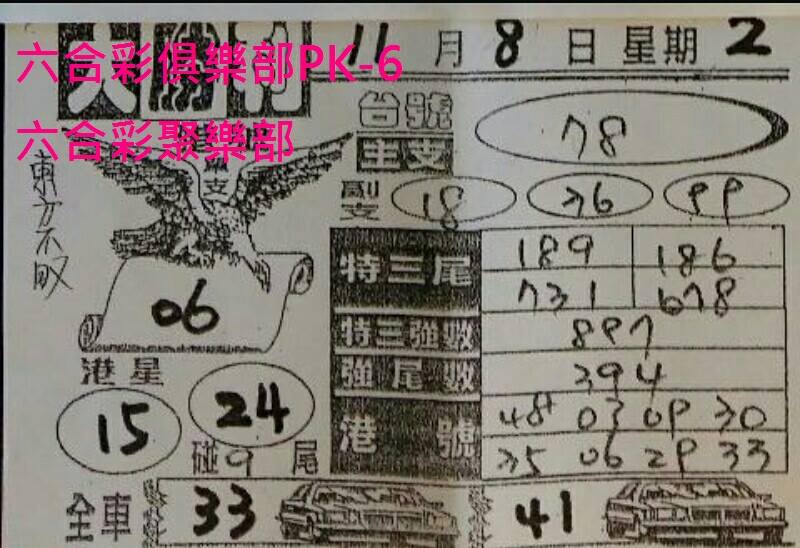 六合彩俱樂部PK-6
六合彩聚樂部
11 月 8 日 星期 2
台號
主支
78
副支
18 36 99
東方不敗
支
06
特三尾
189 186
731 678
特三強數
897
強尾數
394
港號
48+ 03 09 30
35 06 29 33
港星
15 24
碰9尾
全車 33 41